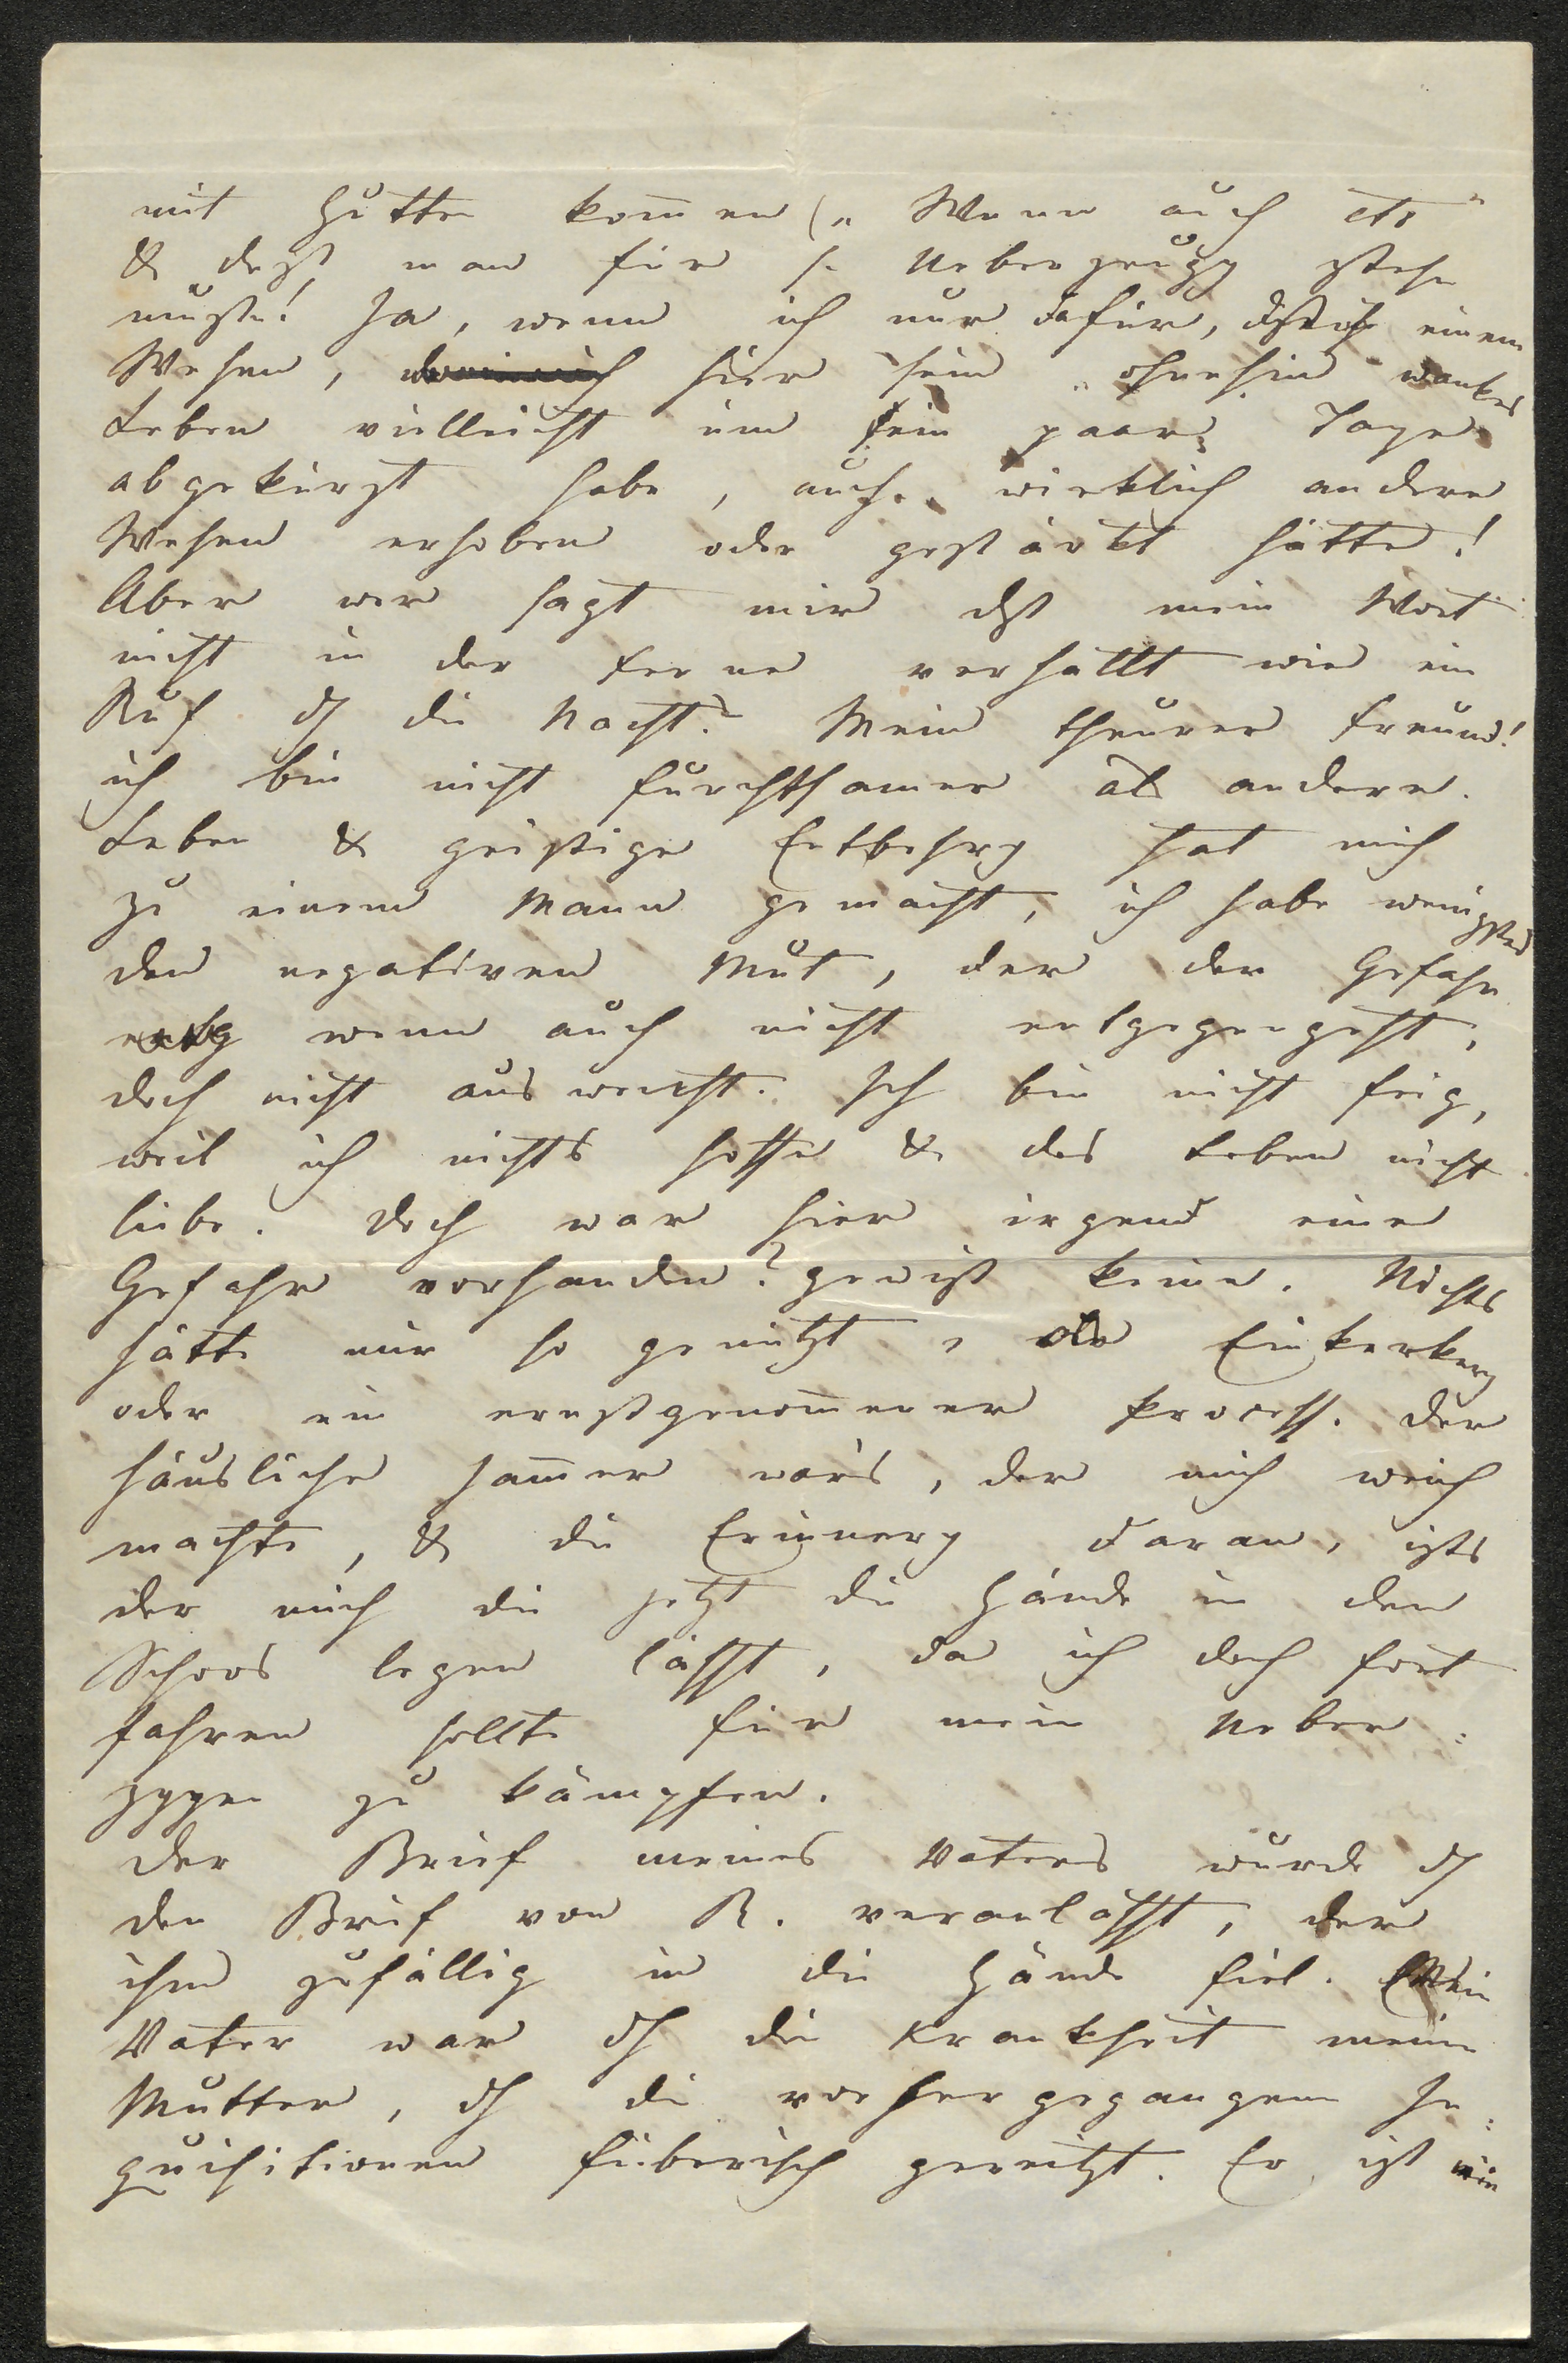 mit Hutten kommen („Wenn auch etc"
& daß man für s. Ueberzeugg stehn
müßte! Ja, wenn ich nur dafür, dß ich einem
Wesen, hier sein „ohnehin" wankes
Leben vielleicht um ein paar Tage
abgekürzt habe, auch wirklich andere
Wesen erhoben oder gestärkt hätte!
Aber wer sagt mir dß mein Wort
nicht in der Ferne verhallt wie ein
Ruf dch die Nacht? Mein theurer Freund!
ich bin nicht furchtsamer als andere.
Leben & geistige Entbehrg hat mich
zu einem Mann gemacht, ich habe wenigstens
den negativen Mut, der der Gefahr
entg wenn auch nicht entgegengeht,
doch nicht ausweicht. Ich bin nicht feig,
weil ich nichts hoffe & das Leben nicht
liebe. Doch war hier irgend eine
Gefahr vorhanden? gewiß keine. Nichts
hätte mir so genützt, als Einkerkerg
oder ein ernstgenommener Process. Der
häusliche Jammer war's, der mich weich
machte, & die Erinnerg daran, ists
der mich die jetzt die Hände in den
Schoos legen lässt, da ich doch fort
fahren sollte für mein Ueber:
zggen zu kämpfen.
Der Brief meines Vaters wurde dch
den Brief von R. veranlasst, der
ihm zufällig in die Hände fiel. Mein
Vater war dch die Krankheit meiner
Mutter, dch die vorhergegangenen In:
quisitionen fieberisch gereitzt. Er ist mir